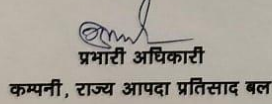 प्रभारी अधिकारी
कम्पनी, राज्य आपदा प्रतिसाद बल